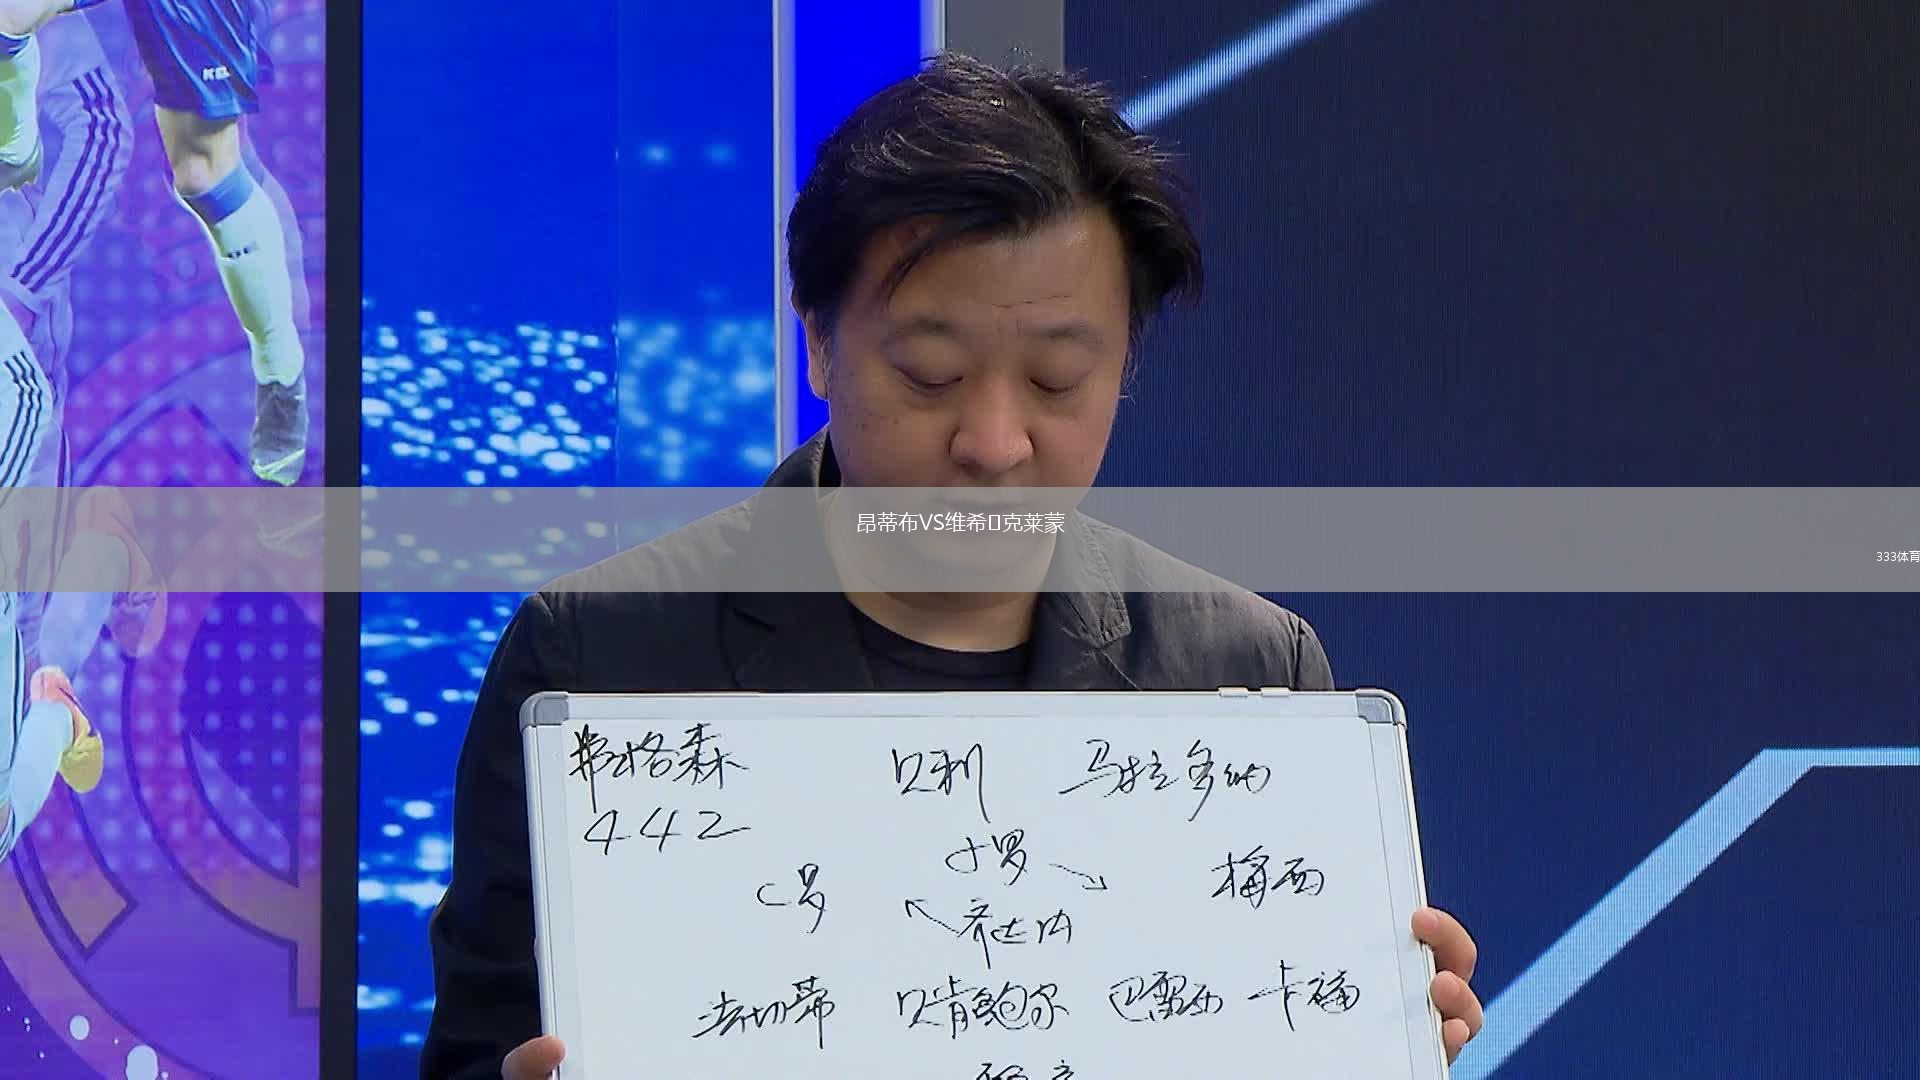 KEL
昂蒂布VS维希▯克莱蒙
333体育
弗格森 贝利 马拉多纳
442
C罗 小罗 梅西
齐达内
法切蒂 贝肯鲍尔 巴雷西 卡福